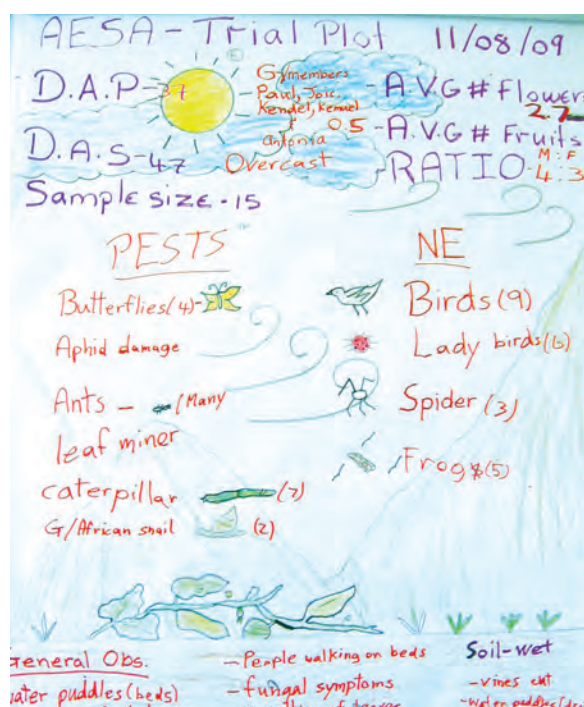 AESA-Trial Plot 11/08/09
D.A.P-37
G/members
Paul, Jose,
Kendel, Kemuel
&
Antonia
Overcast
-A.V.G # Flowers
2.7
0.5 -A.V.G # Fruits
D.A.S-47
RATIO-
M:F
4:3
Sample size-15
PESTS
Butterflies(4)-
Aphid damage
Ants - (Many
leaf miner
caterpillar (7)
G/African snail (2)
NE
Birds(9)
Lady birds(6)
Spider (3)
Frogs(5)
General Obs.
water puddles(beds)
-People walking on beds
-fungal symptoms
Soil-wet
-vines cut
-water puddles